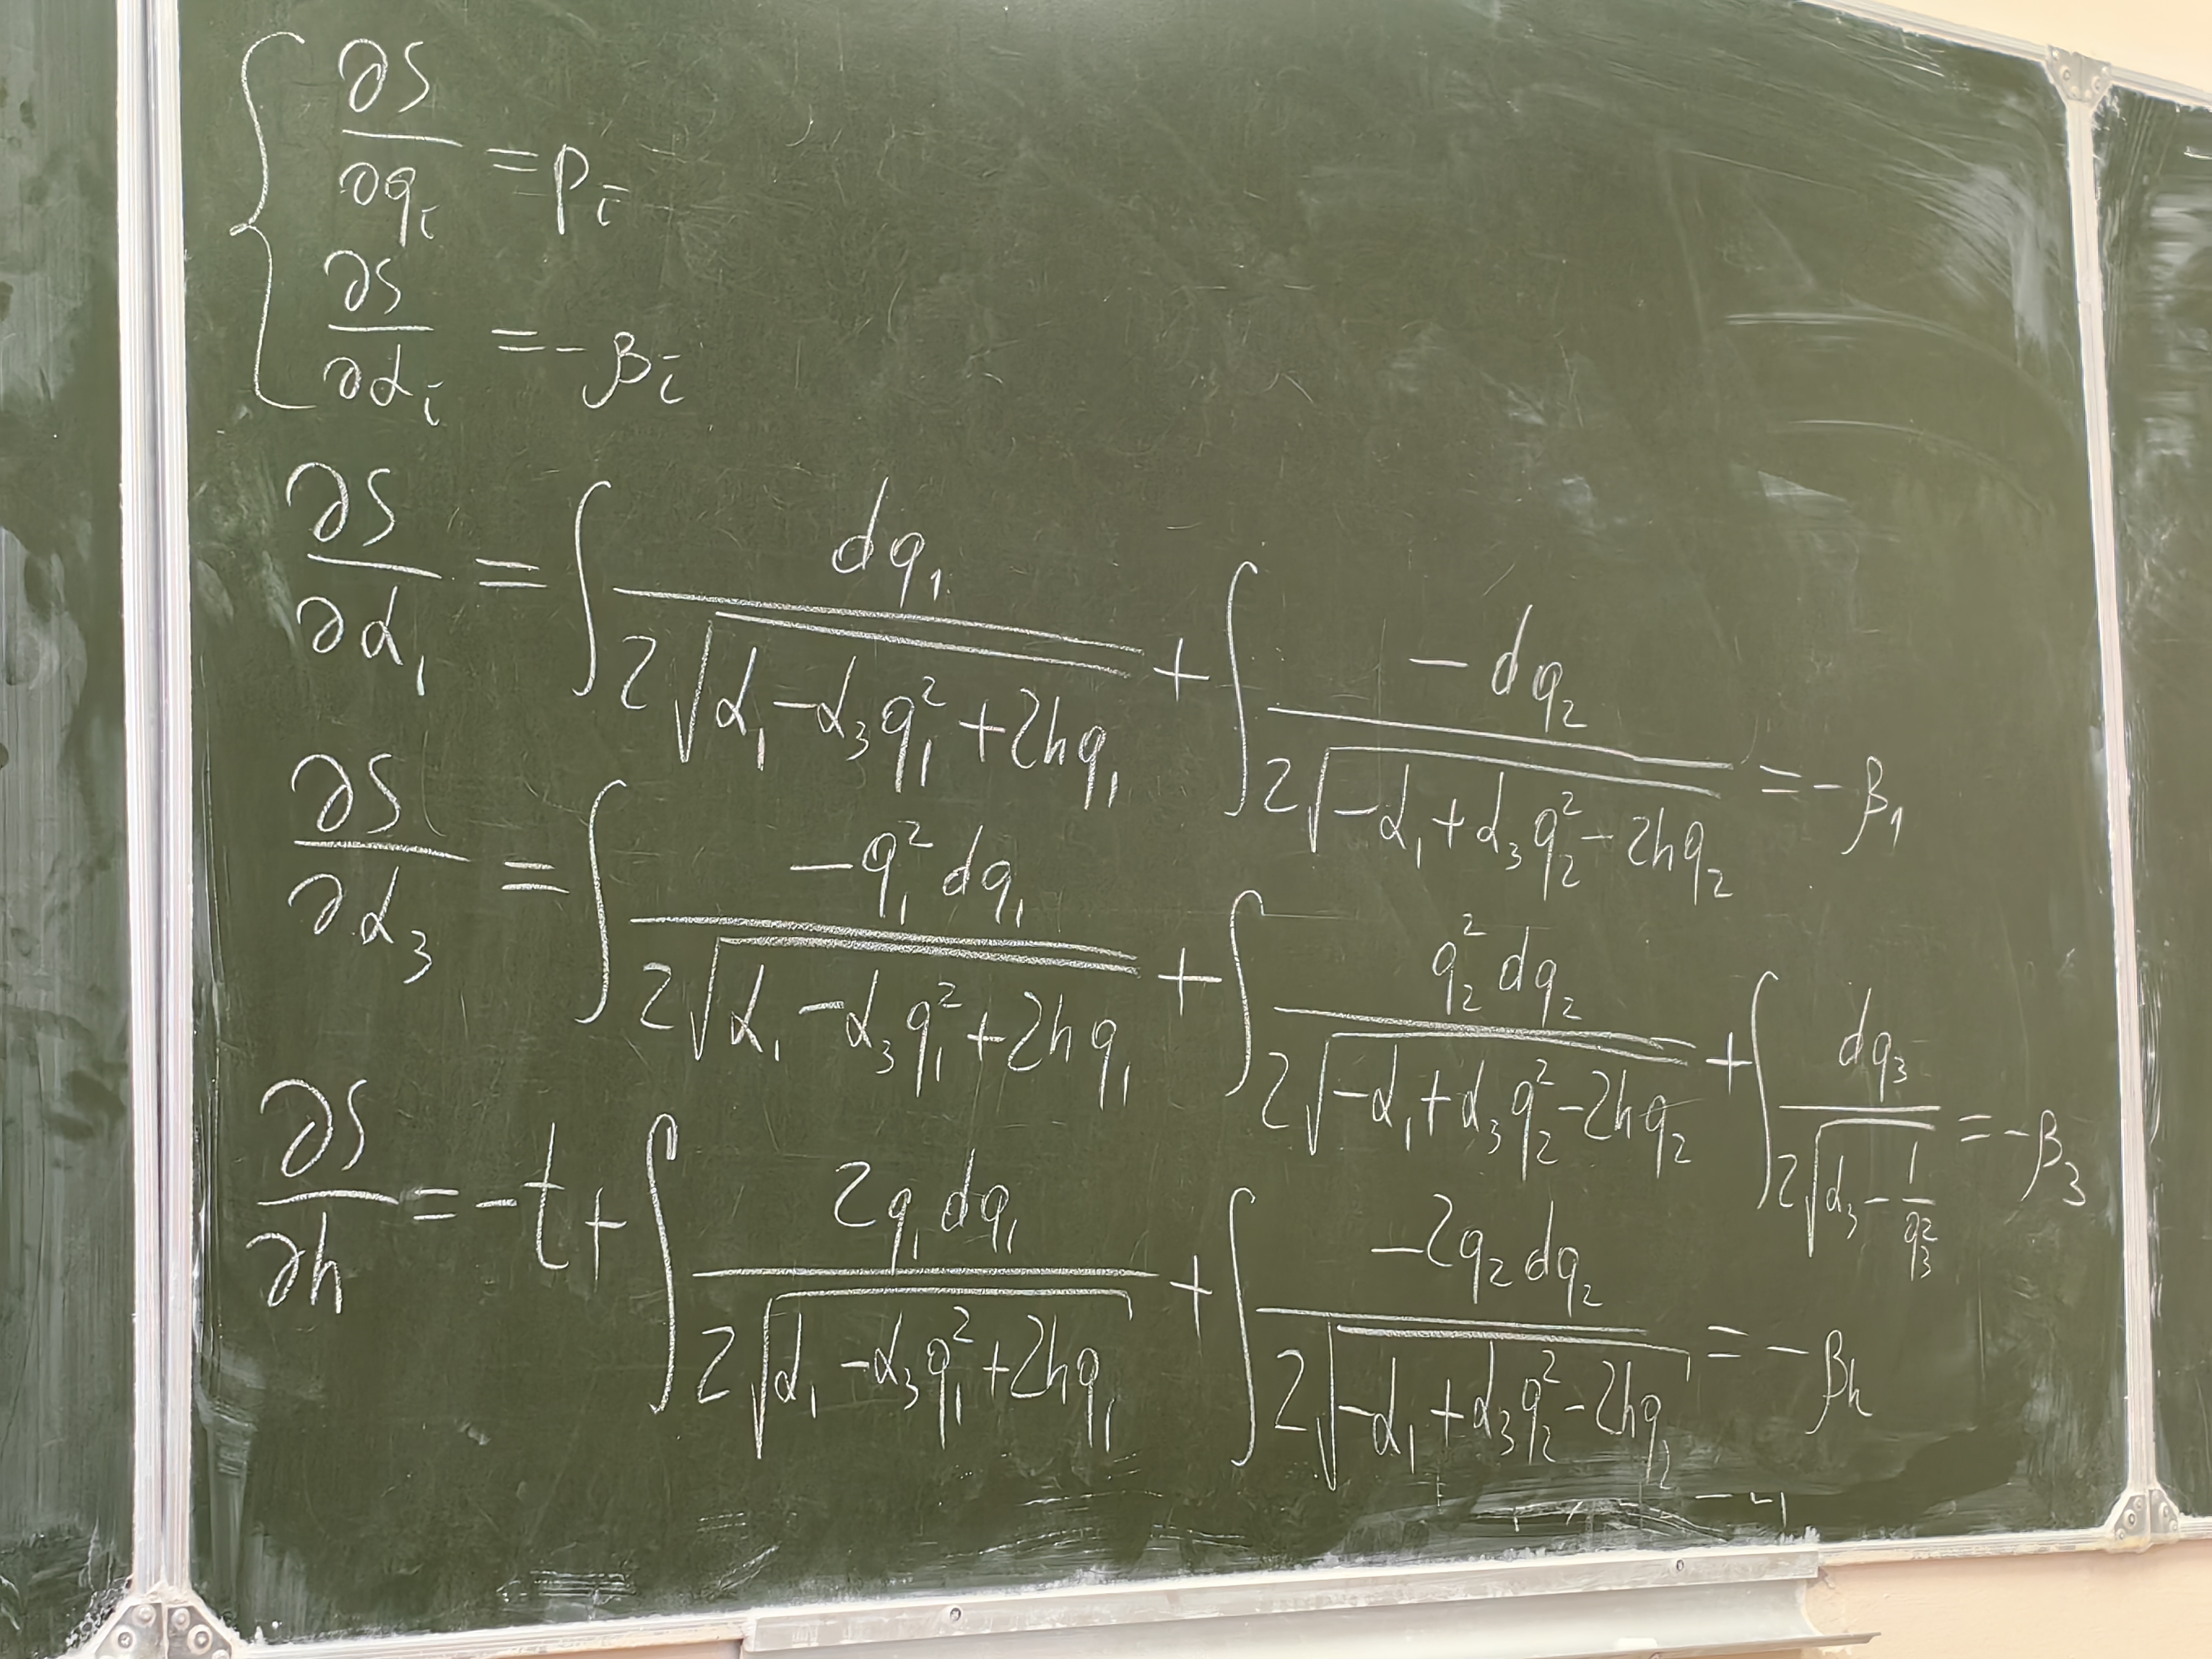 ∂S/∂q_i = p_i
∂S/∂α_i = -β_i
∂S/∂α_1 = ∫ dq_1 / (2√(α_1 - α_3 q_1^2 + 2hq_1)) + ∫ -dq_2 / (2√(-α_1 + α_3 q_2^2 - 2hq_2)) = -β_1
∂S/∂α_3 = ∫ -q_1^2 dq_1 / (2√(α_1 - α_3 q_1^2 + 2hq_1)) + ∫ q_2^2 dq_2 / (2√(-α_1 + α_3 q_2^2 - 2hq_2)) + ∫ dq_3 / (2√(α_3 - 1/q_3^2)) = -β_3
∂S/∂h = -t + ∫ 2q_1 dq_1 / (2√(α_1 - α_3 q_1^2 + 2hq_1)) + ∫ -2q_2 dq_2 / (2√(-α_1 + α_3 q_2^2 - 2hq_2)) = -β_h